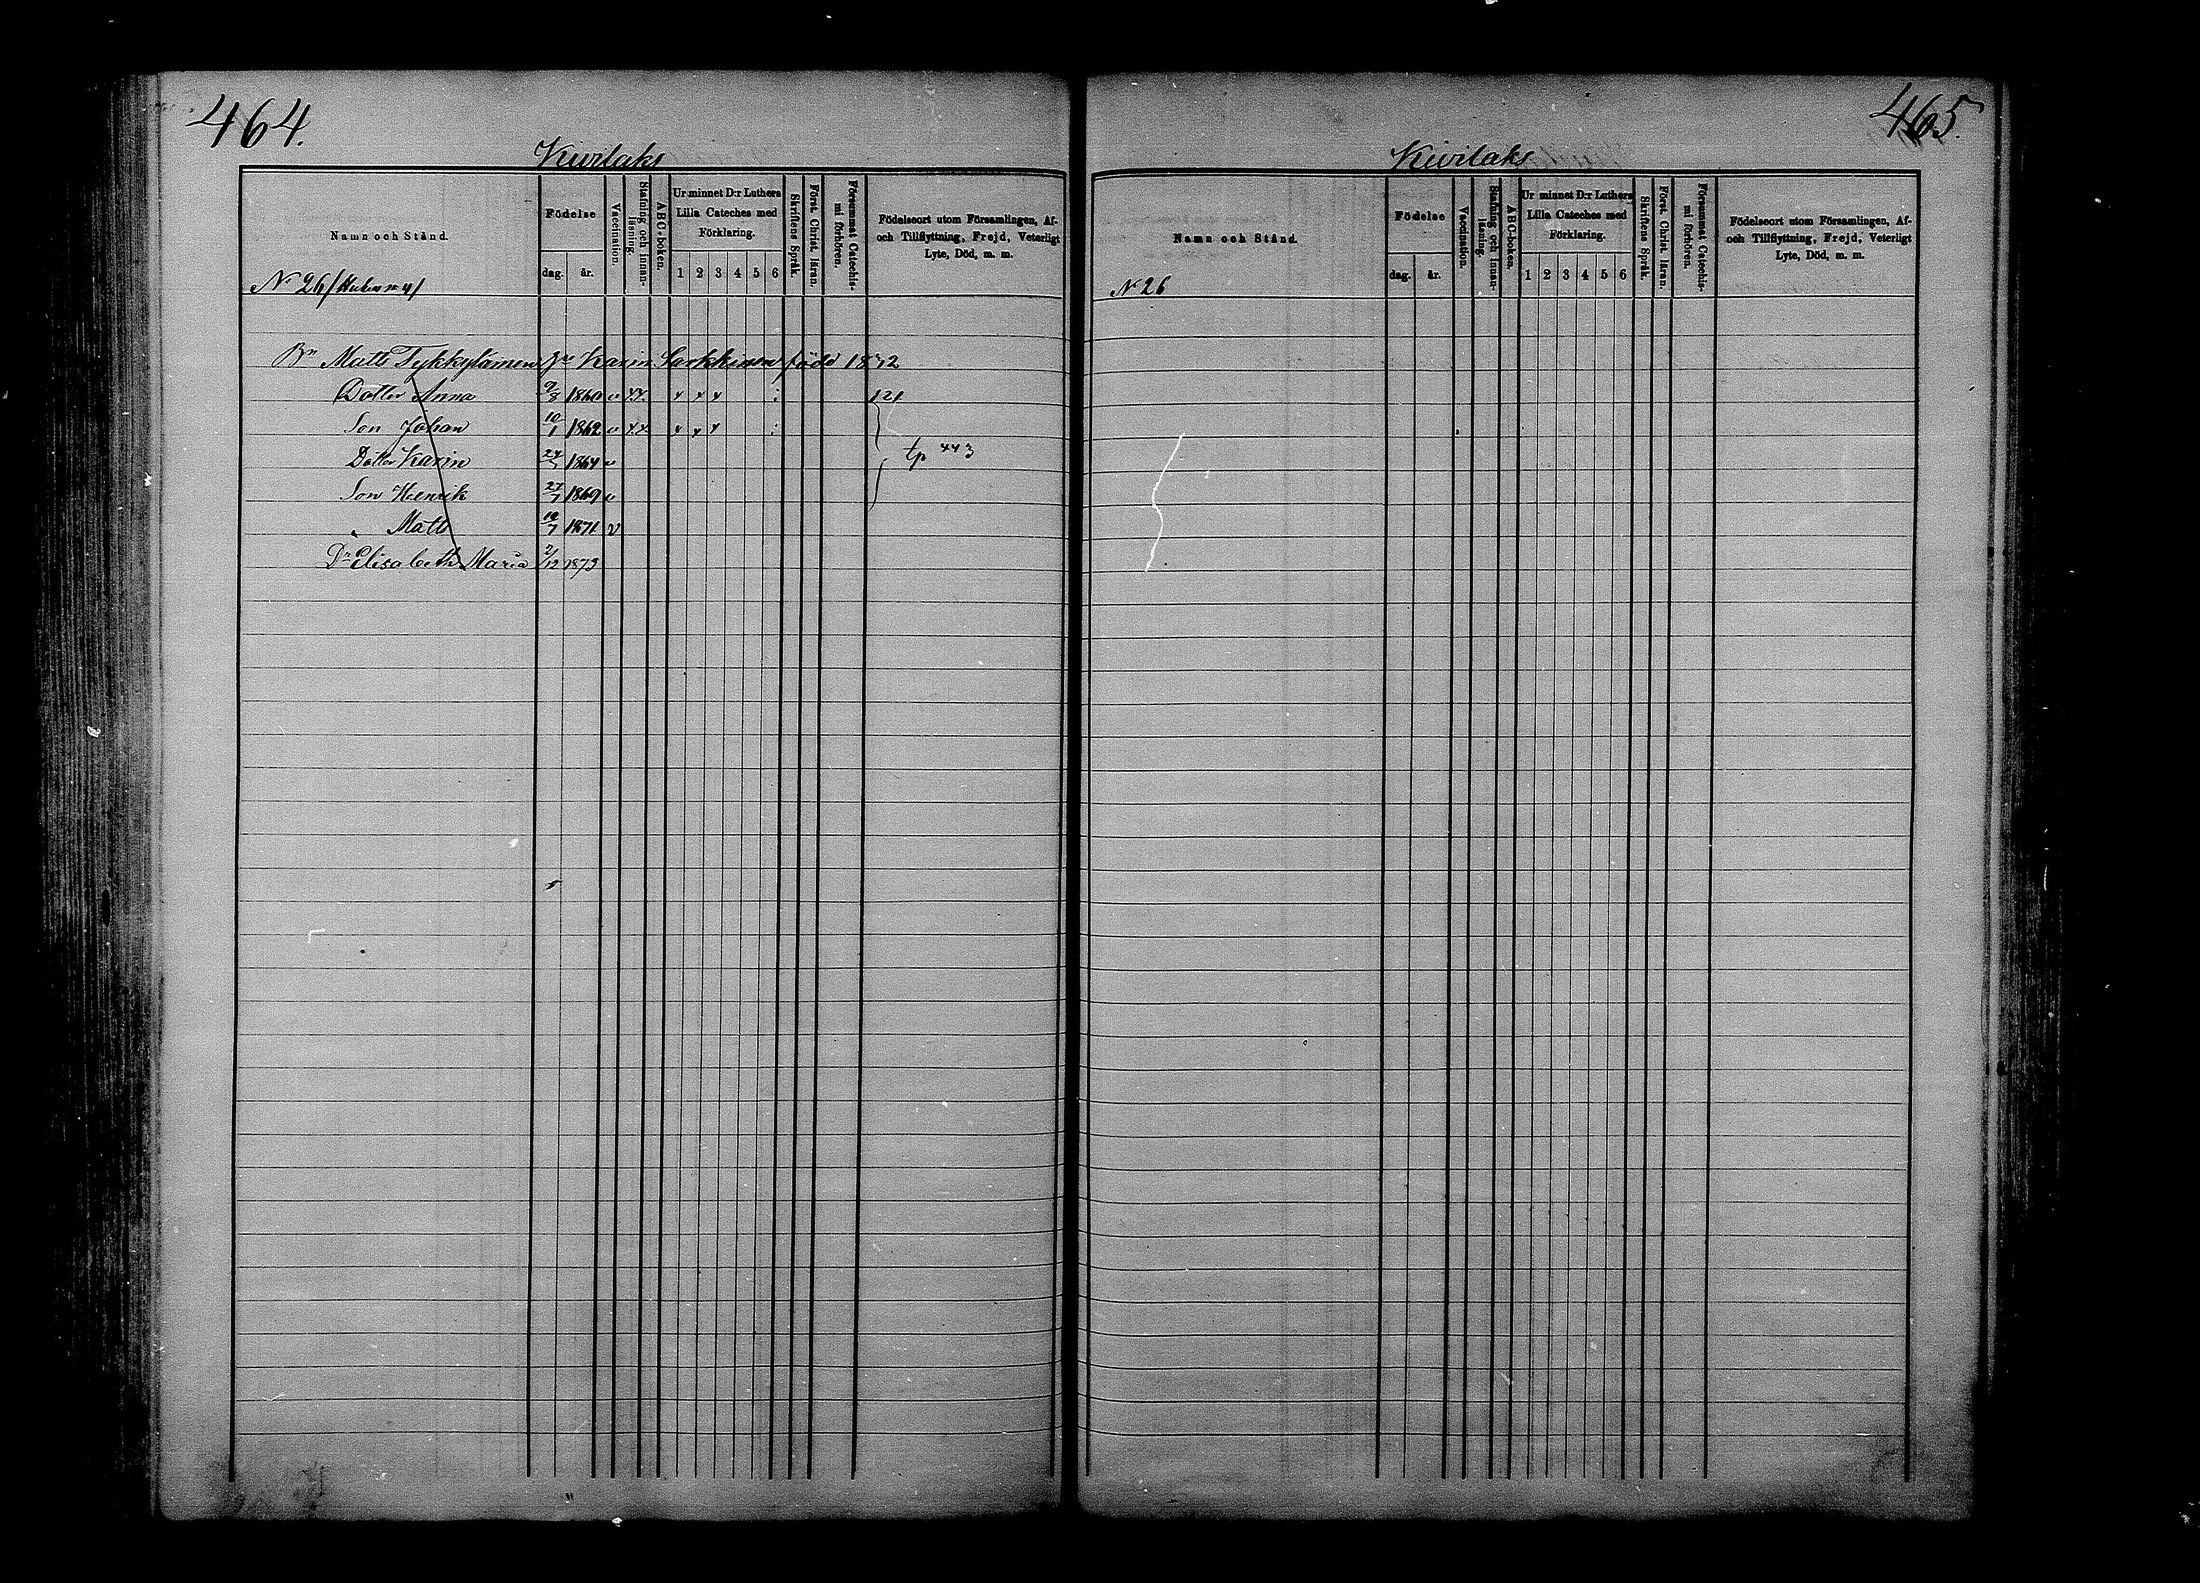 464.
Kivilaks
Namn och Stånd.
Födelse
dag. år.
Vaccination.
Stafning och innanläsning.
ABC-boken.
Ur minnet D:r Luthers Lilla Cateches med Förklaring.
1 2 3 4 5 6
Skriftens Språk.
Först. Christ. läran.
Försummat Catechismi förhören.
Födelseort utom Församlingen, Af- och Tillflyttning, Frejd, Veterligt Lyte, Död, m. m.
N 26
Bn Matts Tykkyläinen Karin född
Dotter Anna 9/8 1860 v x x x
121
Son Johan 10/1 1862 v x x x
Dotter Karin 1864 v
tp 443
Son Henrik 27/7 1869 v
" Matts 1871 v
Dr Elisabeth Maria 2/12 1873
465.
Kivilaks
Namn och Stånd.
Födelse
dag. år.
Vaccination.
Stafning och innanläsning.
ABC-boken.
Ur minnet D:r Luthers Lilla Cateches med Förklaring.
1 2 3 4 5 6
Skriftens Språk.
Först. Christ. läran.
Försummat Catechismi förhören.
Födelseort utom Församlingen, Af- och Tillflyttning, Frejd, Veterligt Lyte, Död, m. m.
N 26